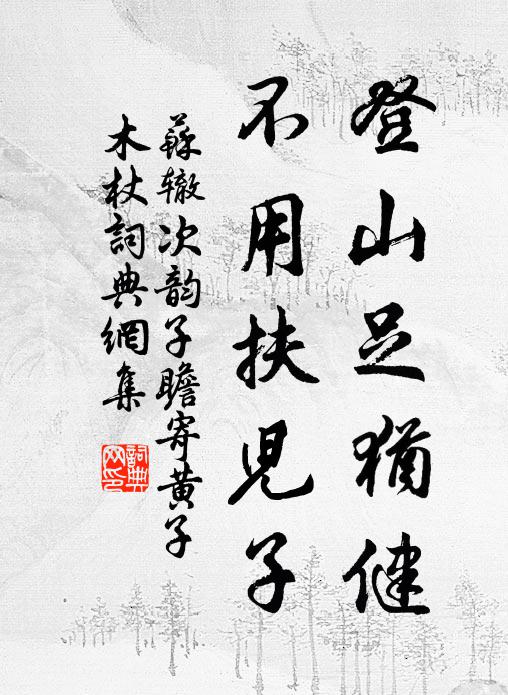 登山足猶健
不用扶兒子
蘇辙次韵子瞻寄黄子
木杖詞典網集
詞典
网印